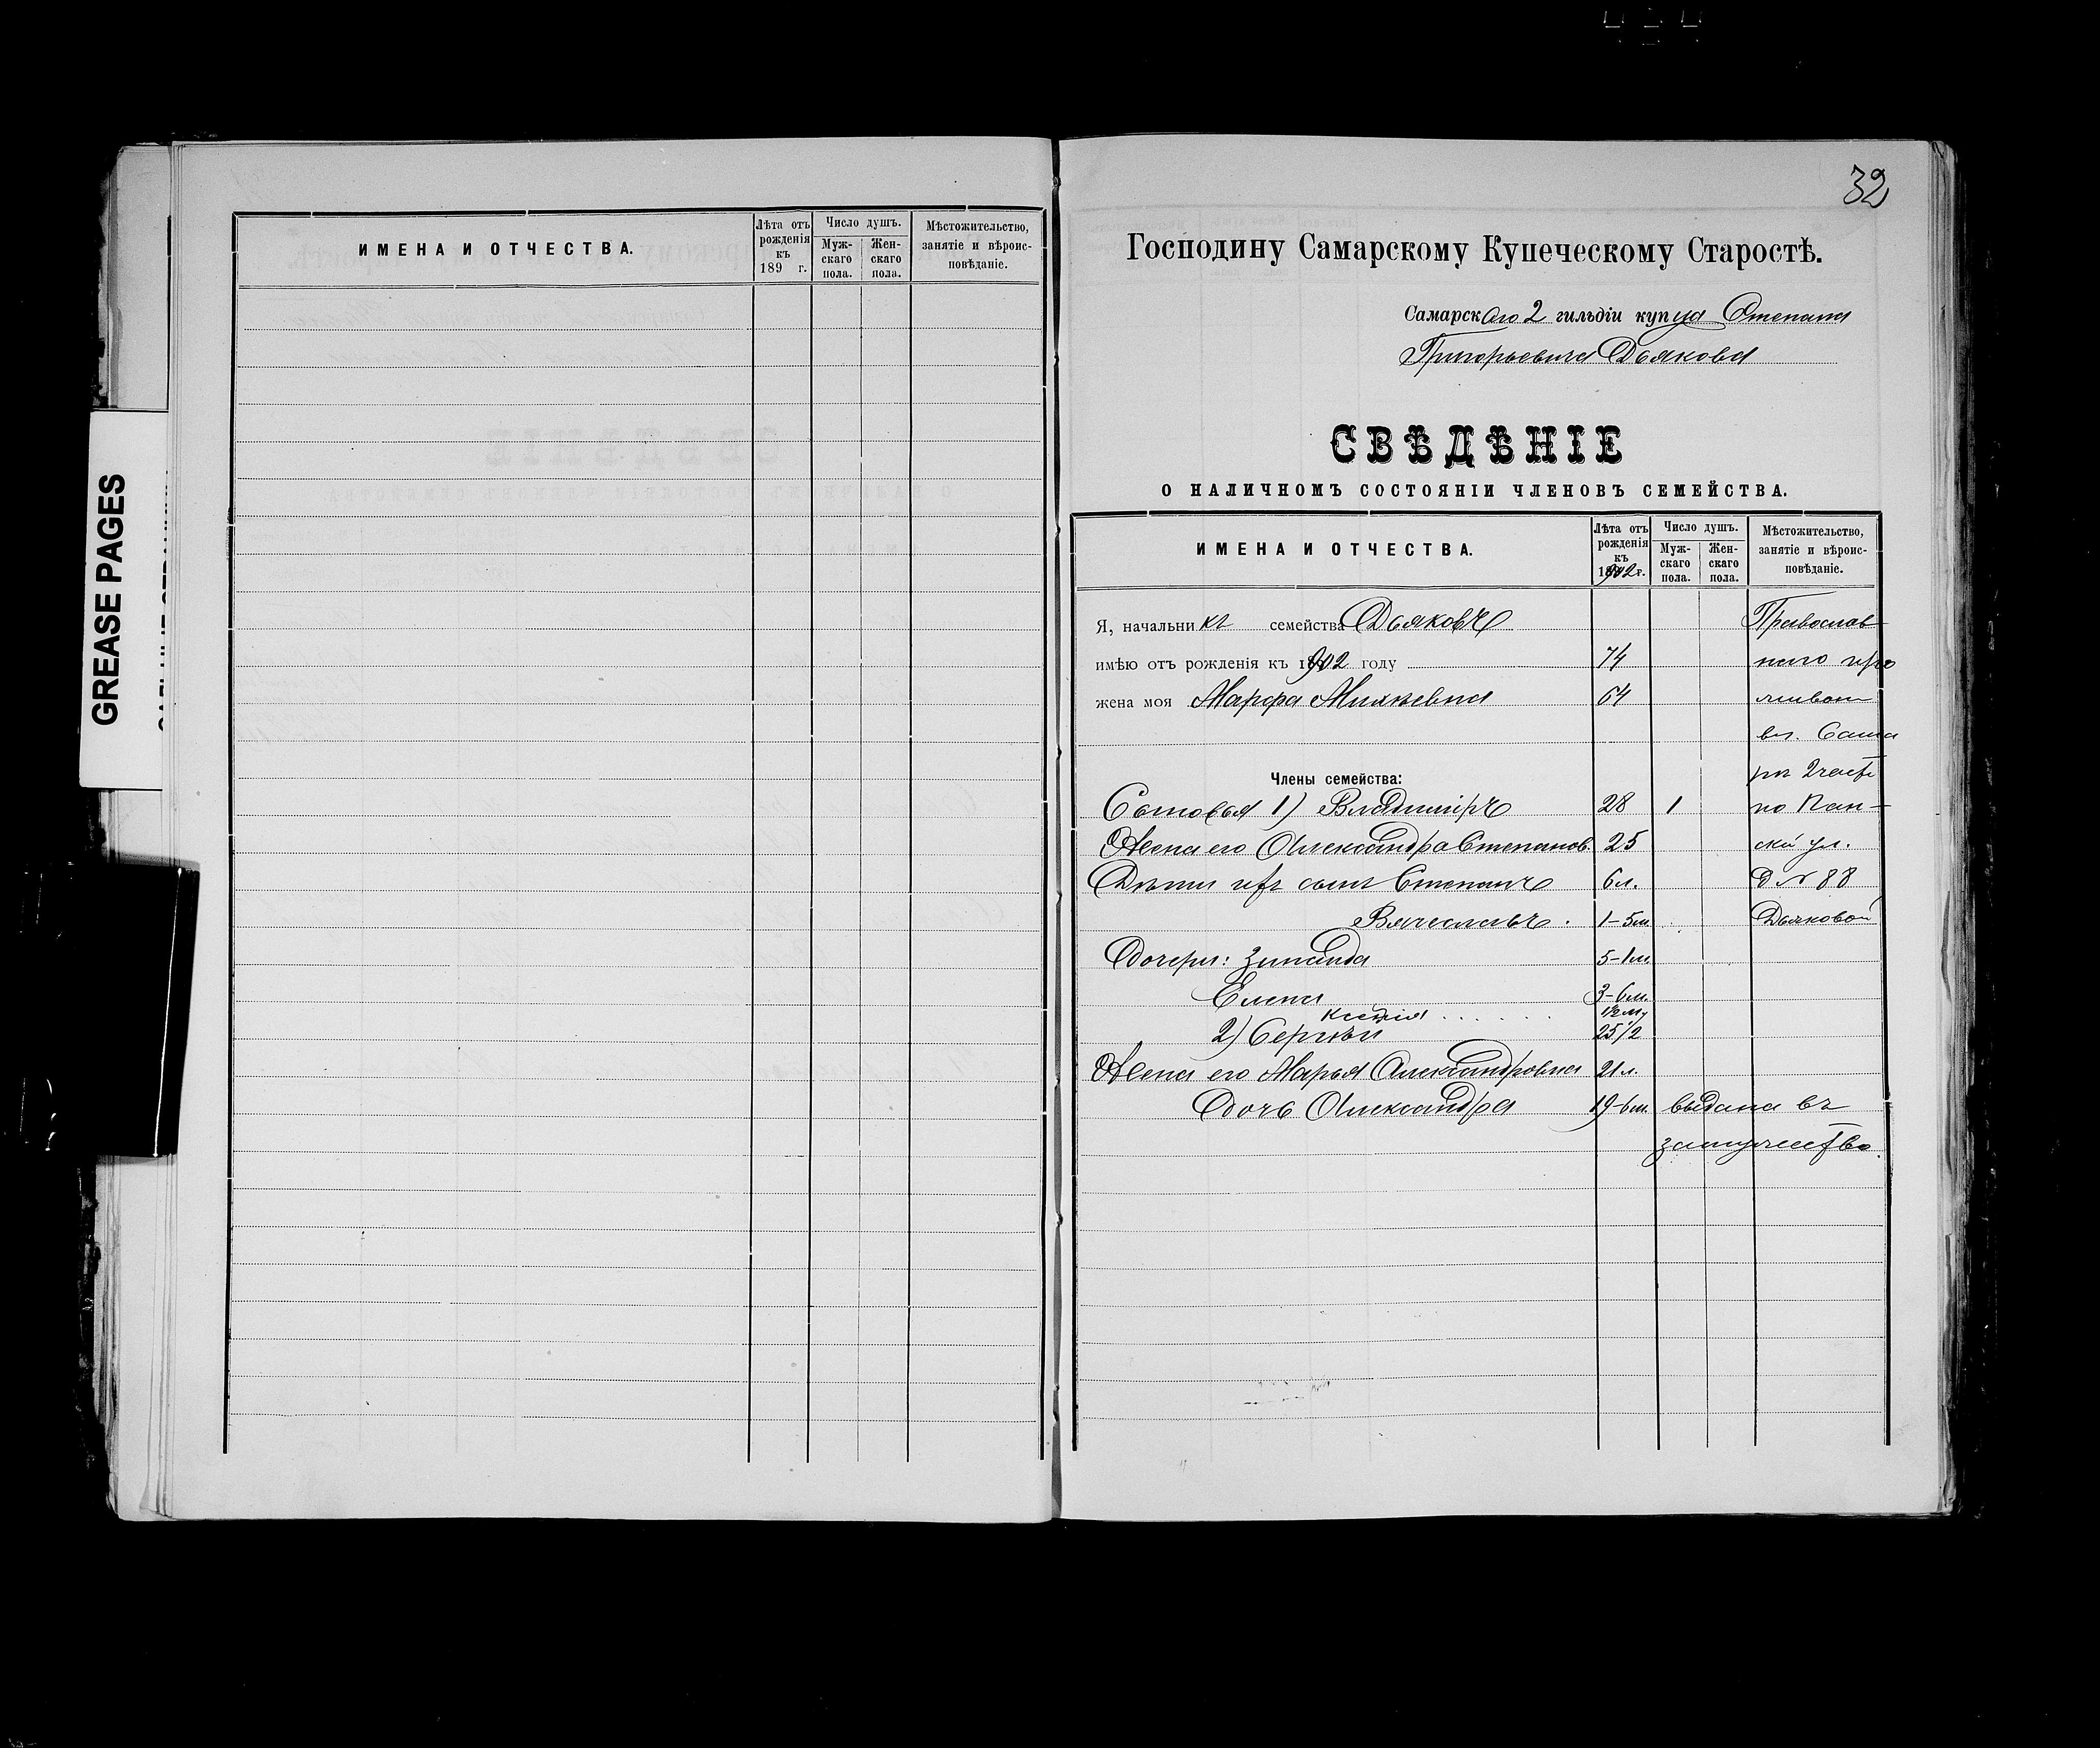 GREASE PAGES
ИМЕНА И ОТЧЕСТВА.
Лѣта отъ рожденія къ 189 г.
Число душъ.
Мужскаго пола.
Женскаго пола.
Мѣстожительство, занятіе и вѣроисповѣданіе.
32
Господину Самарскому Купеческому Старостѣ.
Самарскаго 2 гильдіи купца Степана
Григорьевича Дьякова
СВѢДѢНІЕ
О НАЛИЧНОМЪ СОСТОЯНІИ ЧЛЕНОВЪ СЕМЕЙСТВА.
ИМЕНА И ОТЧЕСТВА.
Лѣта отъ рожденія къ 1902 г.
Число душъ.
Мужскаго пола.
Женскаго пола.
Мѣстожительство, занятіе и вѣроисповѣданіе.
Я, начальникъ семейства Дьяковъ Православ-
имѣю отъ рожденія къ 1902 году 74 наго про
жена моя Марфа 64 живаю
въ Сама
Члены семейства: рѣ 2 части
Сыновья 1) Владиміръ 28 1 по Пан-
Жена его Александра Степанов. 25 ской ул.
Дѣти ихъ сынъ Степанъ 6 л. д № 88
Вячеславъ 1-5 м. Дьяковой
Дочери: Зинаида 5-1 м.
Елена 3-6 м.
Ксенія
2) Сергѣй 25 1/2
Жена его Марья Александровна 21 л.
Дочь Александра 19-6 м. выдана въ
замужество.